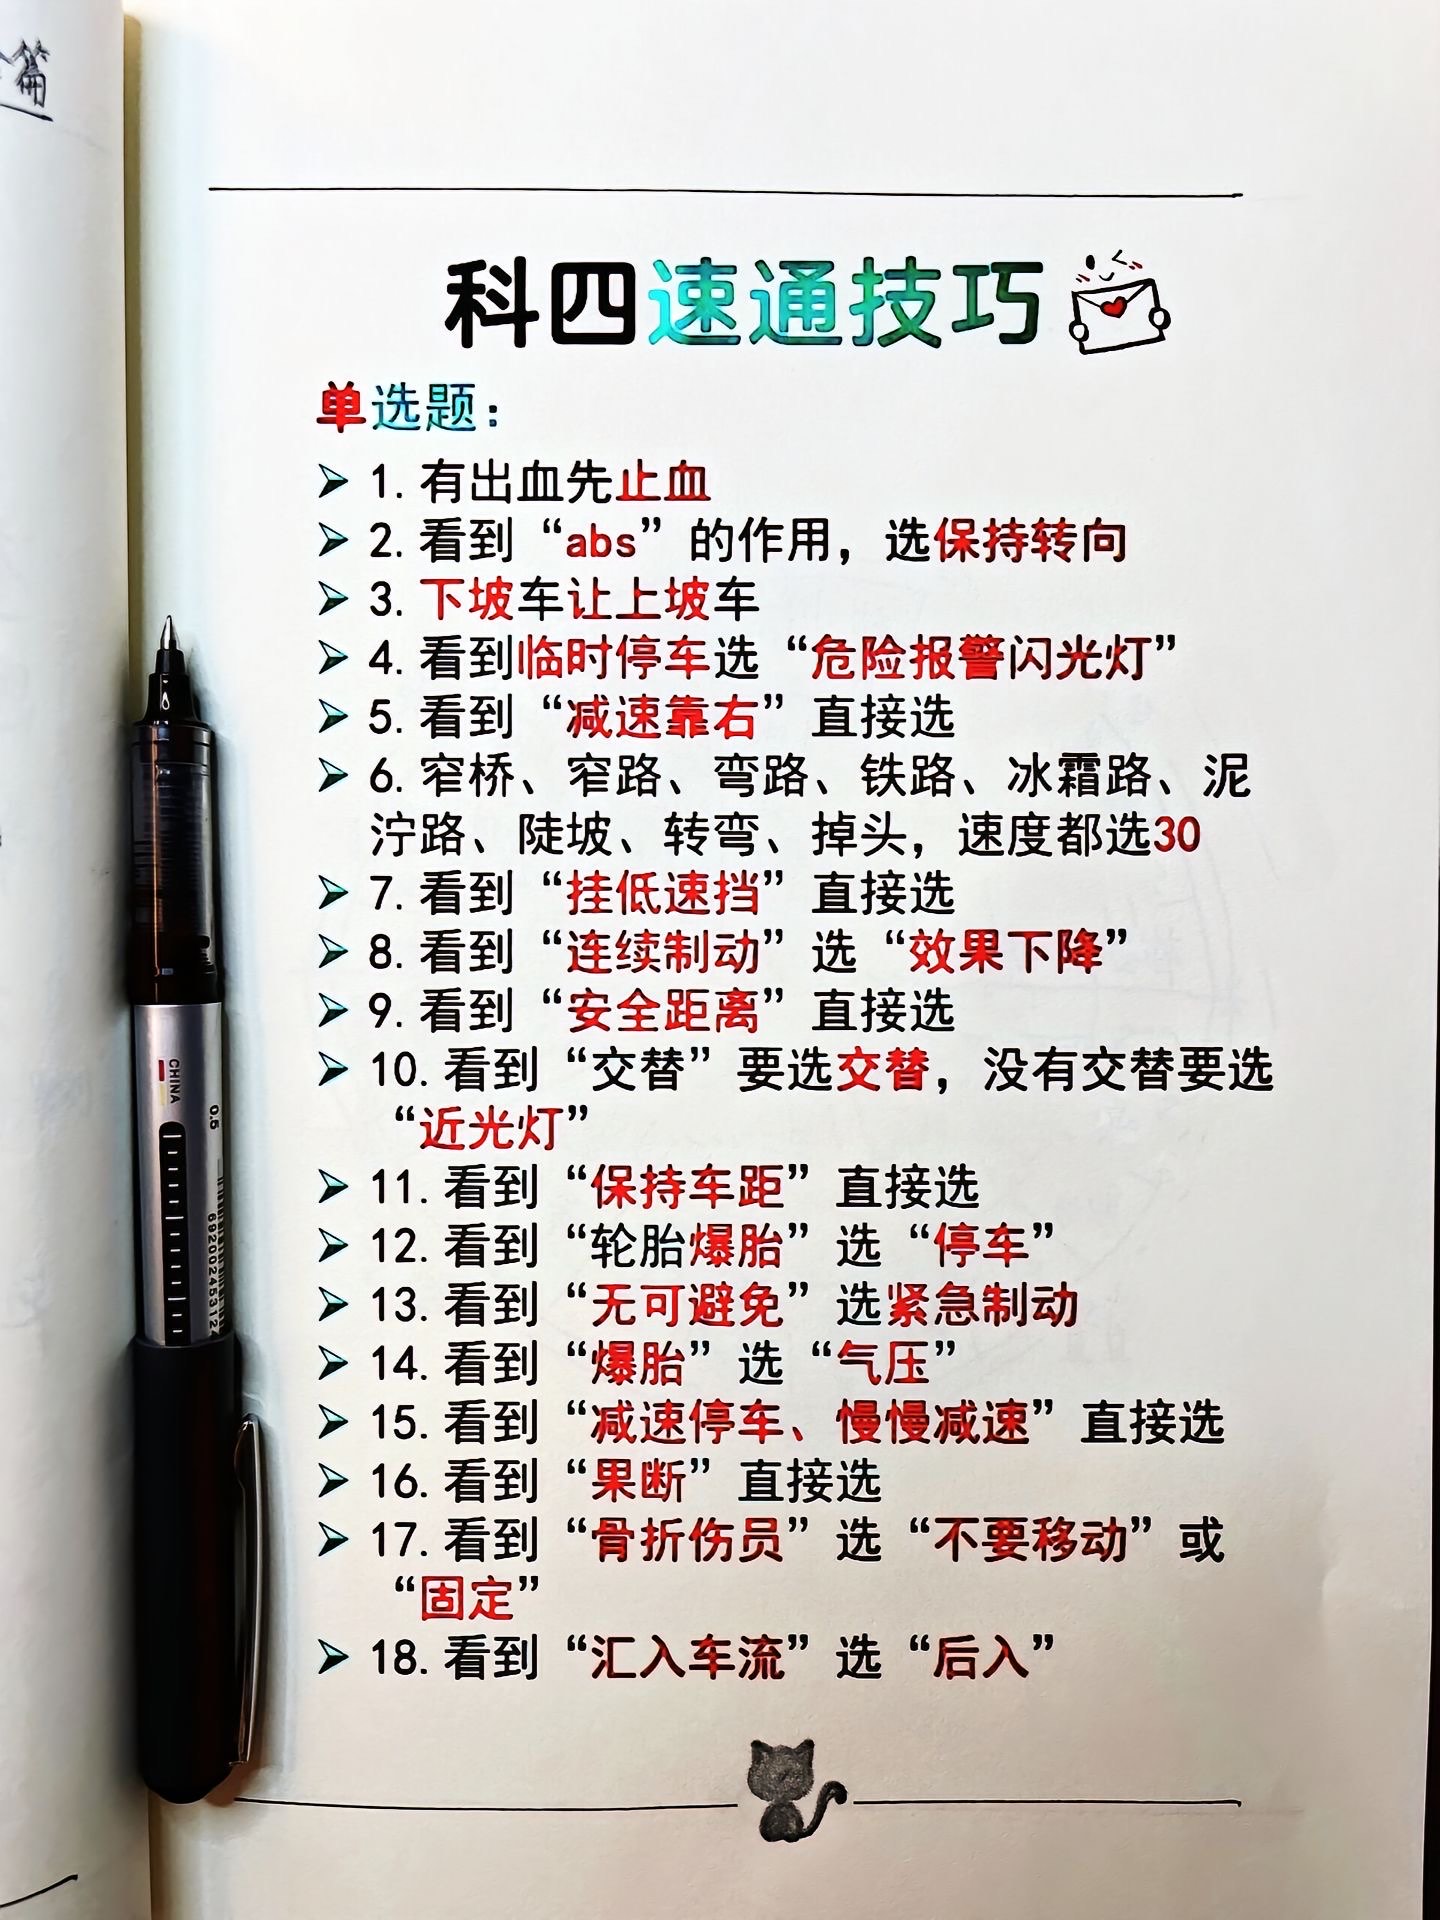 篇
科四速通技巧
单选题：
➢ 1. 有出血先止血
➢ 2. 看到“abs”的作用，选保持转向
➢ 3. 下坡车让上坡车
➢ 4. 看到临时停车选“危险报警闪光灯”
➢ 5. 看到“减速靠右”直接选
➢ 6. 窄桥、窄路、弯路、铁路、冰霜路、泥
泞路、陡坡、转弯、掉头，速度都选30
➢ 7. 看到“挂低速挡”直接选
➢ 8. 看到“连续制动”选“效果下降”
➢ 9. 看到“安全距离”直接选
➢ 10. 看到“交替”要选交替，没有交替要选
“近光灯”
➢ 11. 看到“保持车距”直接选
➢ 12. 看到“轮胎爆胎”选“停车”
➢ 13. 看到“无可避免”选紧急制动
➢ 14. 看到“爆胎”选“气压”
➢ 15. 看到“减速停车、慢慢减速”直接选
➢ 16. 看到“果断”直接选
➢ 17. 看到“骨折伤员”选“不要移动”或
“固定”
➢ 18. 看到“汇入车流”选“后入”
CHINA
0.5